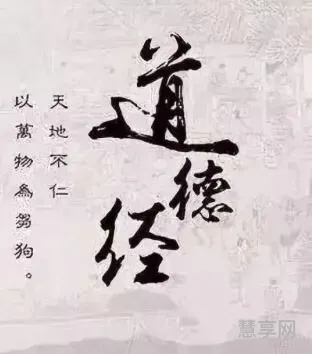 道德经
天地不仁
以萬物為芻狗。
慧享网